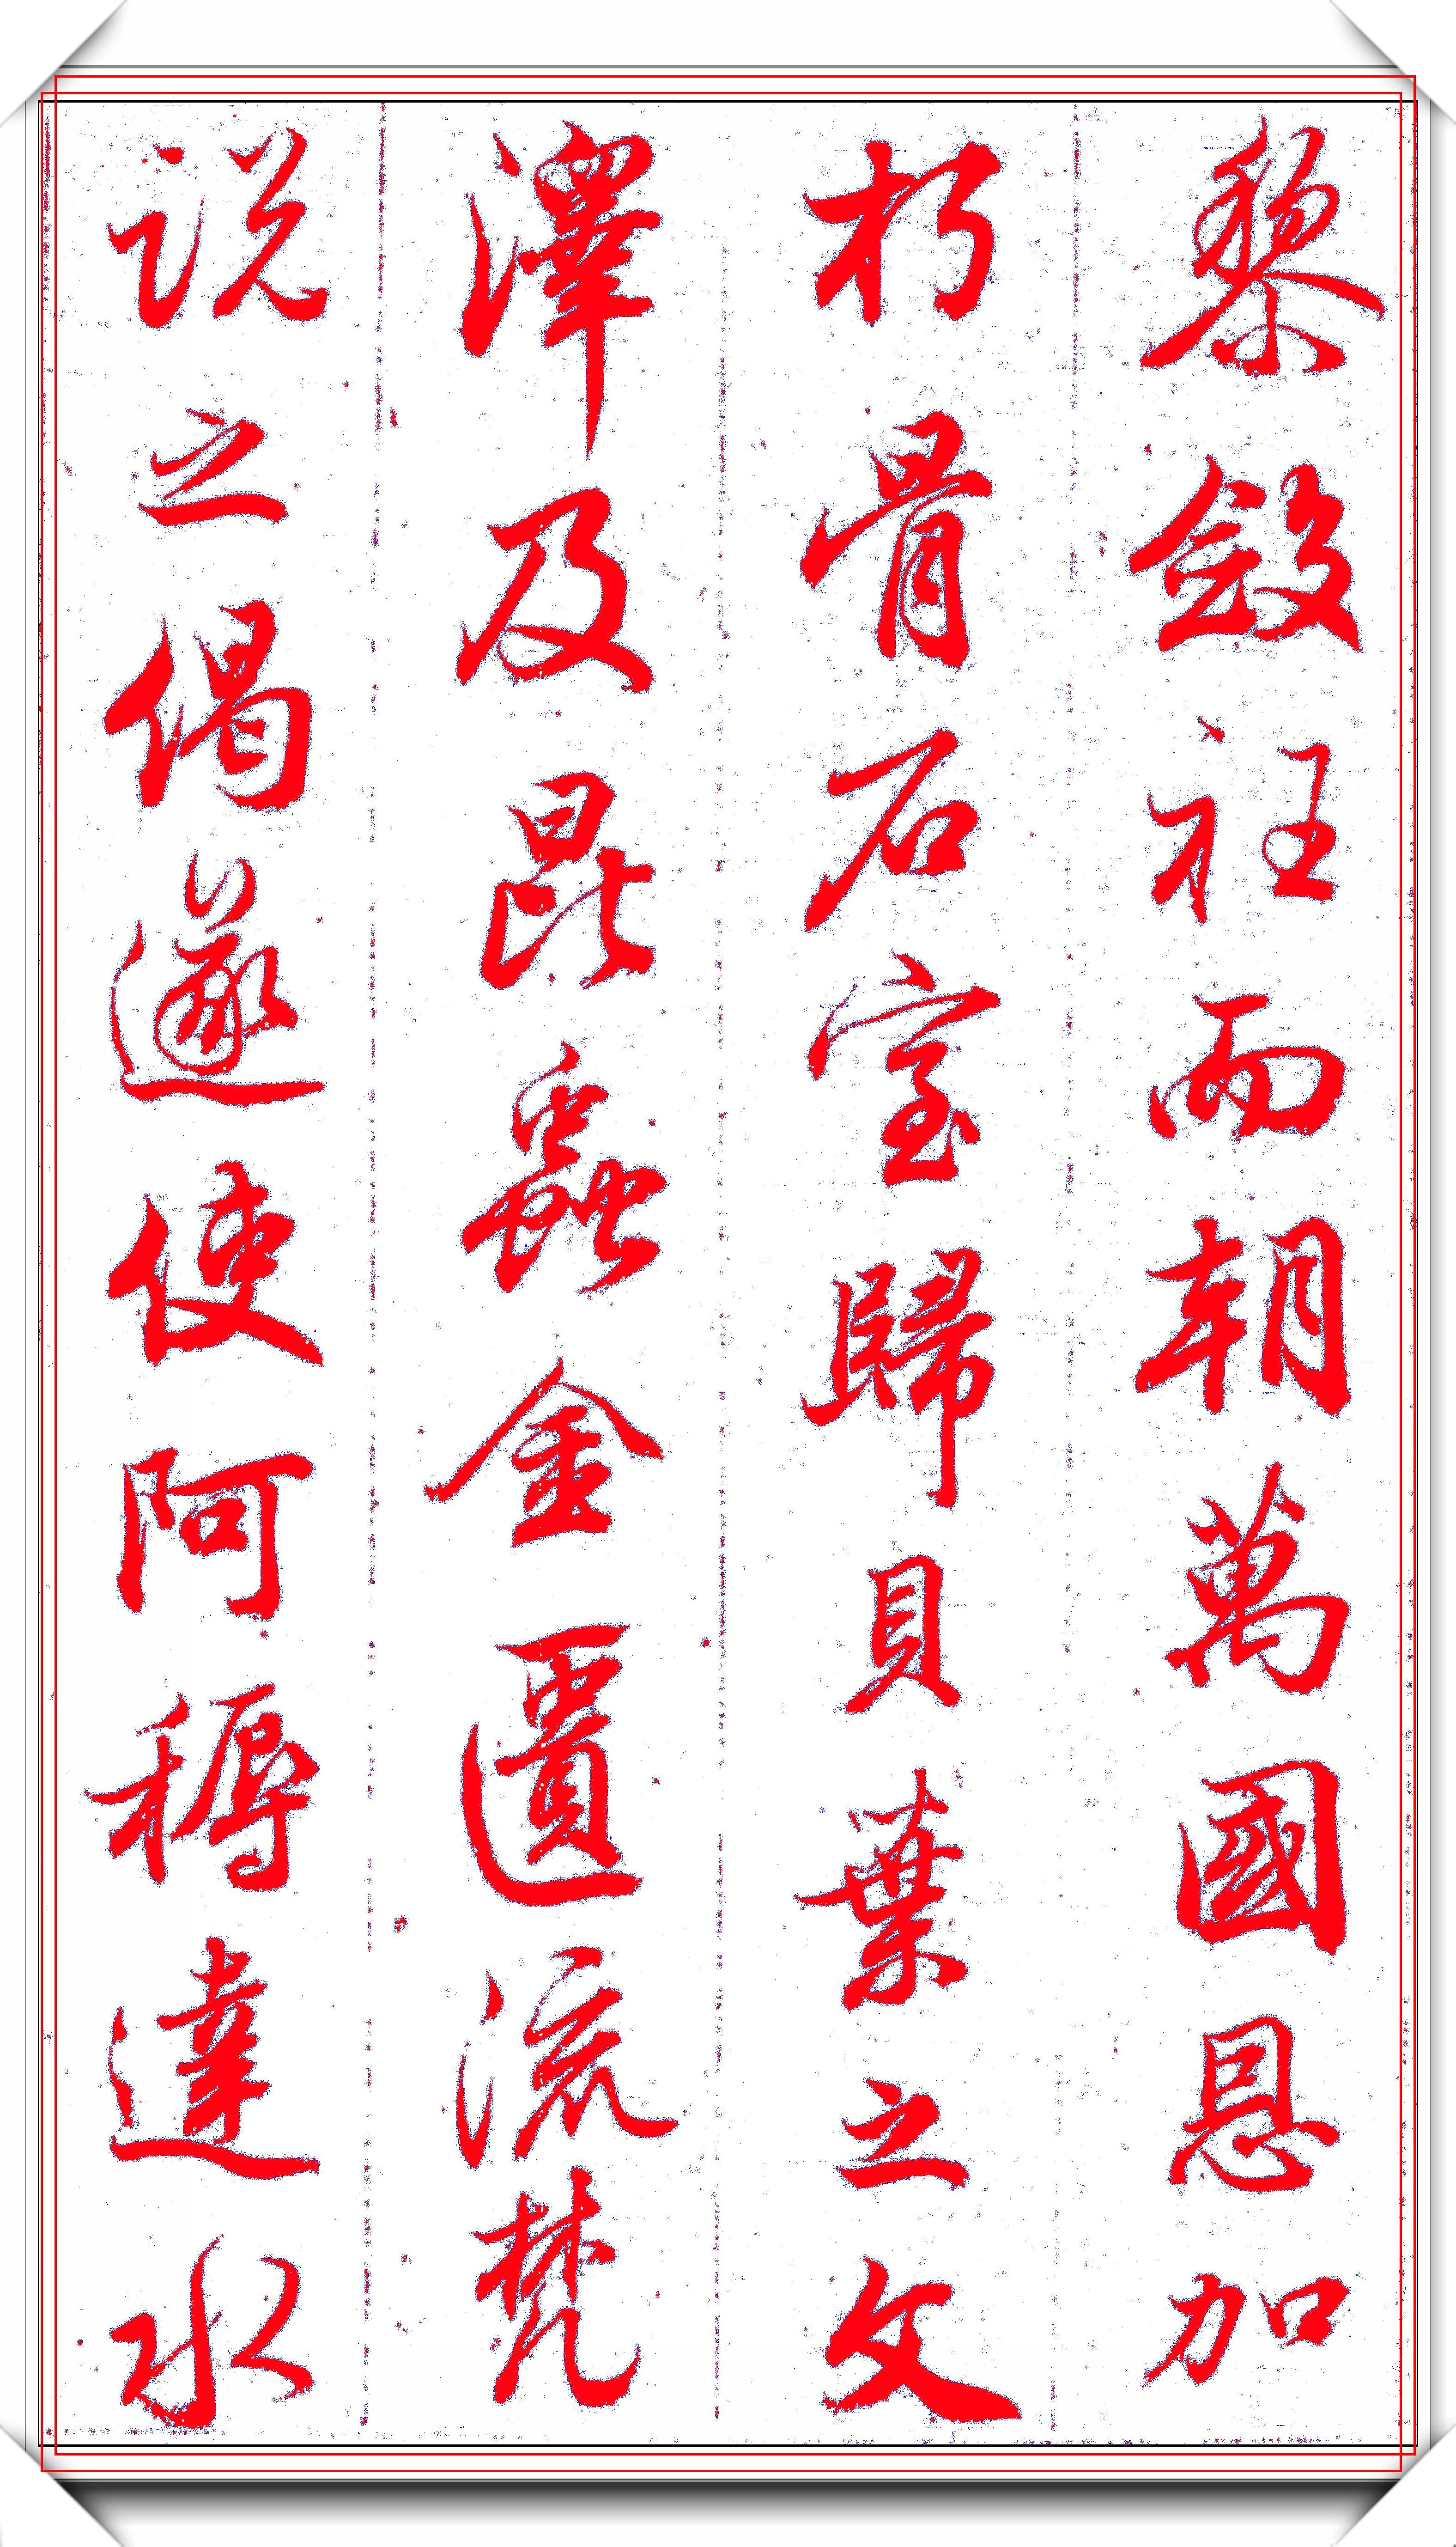 黎斂衽而朝萬國恩加
朽骨石室歸貝葉之文
澤及昆蟲金匱流梵
説之偈遂使阿耨達水